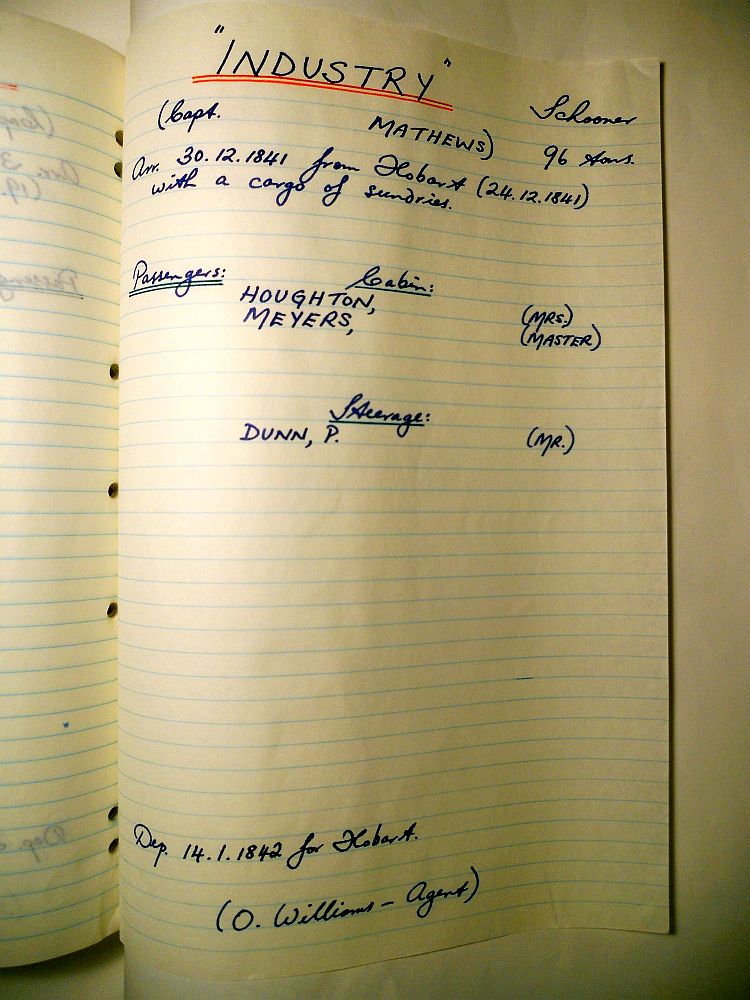 "INDUSTRY"
(Capt. MATHEWS) Schooner
96 tons.
Arr. 30.12.1841 from Hobart (24.12.1841)
with a cargo of sundries.
Passengers: Cabin:
HOUGHTON, (MRS.)
MEYERS, (MASTER)
Steerage:
DUNN, P. (MR.)
Dep. 14.1.1842 for Hobart.
(O. Williams - Agent)